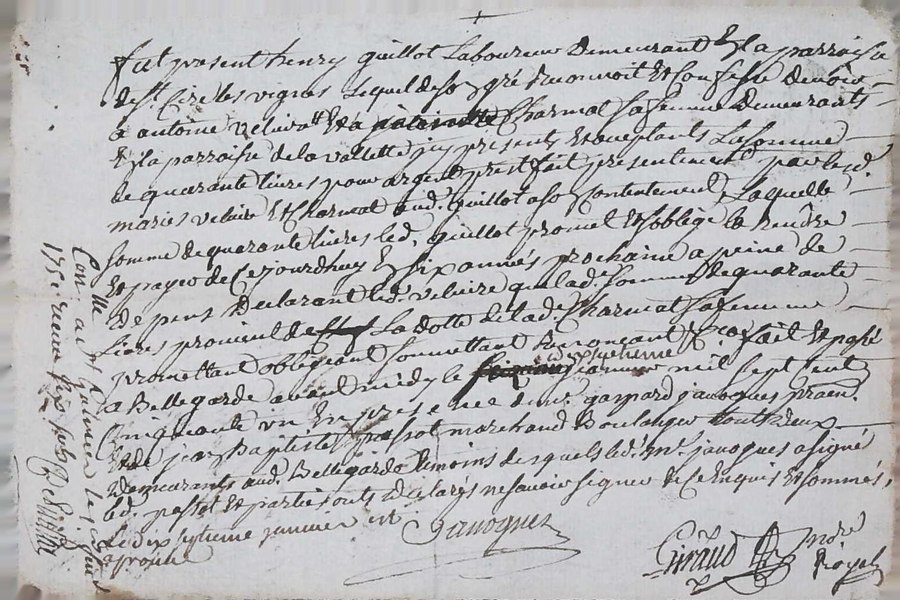 fut present henry guillot Laboureur Demeurant En la parroisse
de st Cire les vignes Lequel de son gré Reconnoit Et Confesse devoir
a antoine veluire Et a Charmat sa femme Demeurants
En la parroisse de la vallette icy presents Et aceptants La somme
de quarante livres pour argent prest fait presentement par lesd.
mariés veluire Et Charmat aud. guillot a son Contentement Laquelle
somme de quarante livres led. guillot promet Et soblige de Rendre
Et payer de Cejourdhuy En six années prochaine a peine de
De pens Declarant led. veluire que lad. somme de quarante
Livres provient de La dotte de lad. Charmat sa femme
promettant obligeant soumettant Renonçant fait Et passé
a Bellegarde avant midy le dix septieme janvier mil sept cent
Cinquante un En presence de mr. gaspard janoques praen.
Et de jean Baptiste passot marchand Boulanger touts deux
Demeurants aud. Bellegarde temoins desquels led. mr. janoques a signé
led. passot Et parties onts declarés ne savoir signer de ce Enquis Et sommés,
Le dix septieme janvier
Janoques
Giraud nore Royal
Con. a st galmier le
1751 Receu six sols